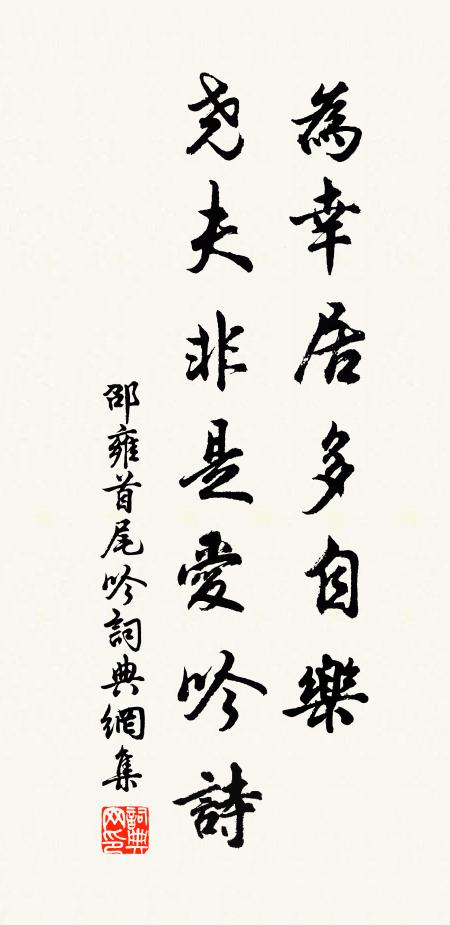 為幸居多自樂
堯夫非是愛吟詩
邵雍首尾吟詞典網集
詞典網印